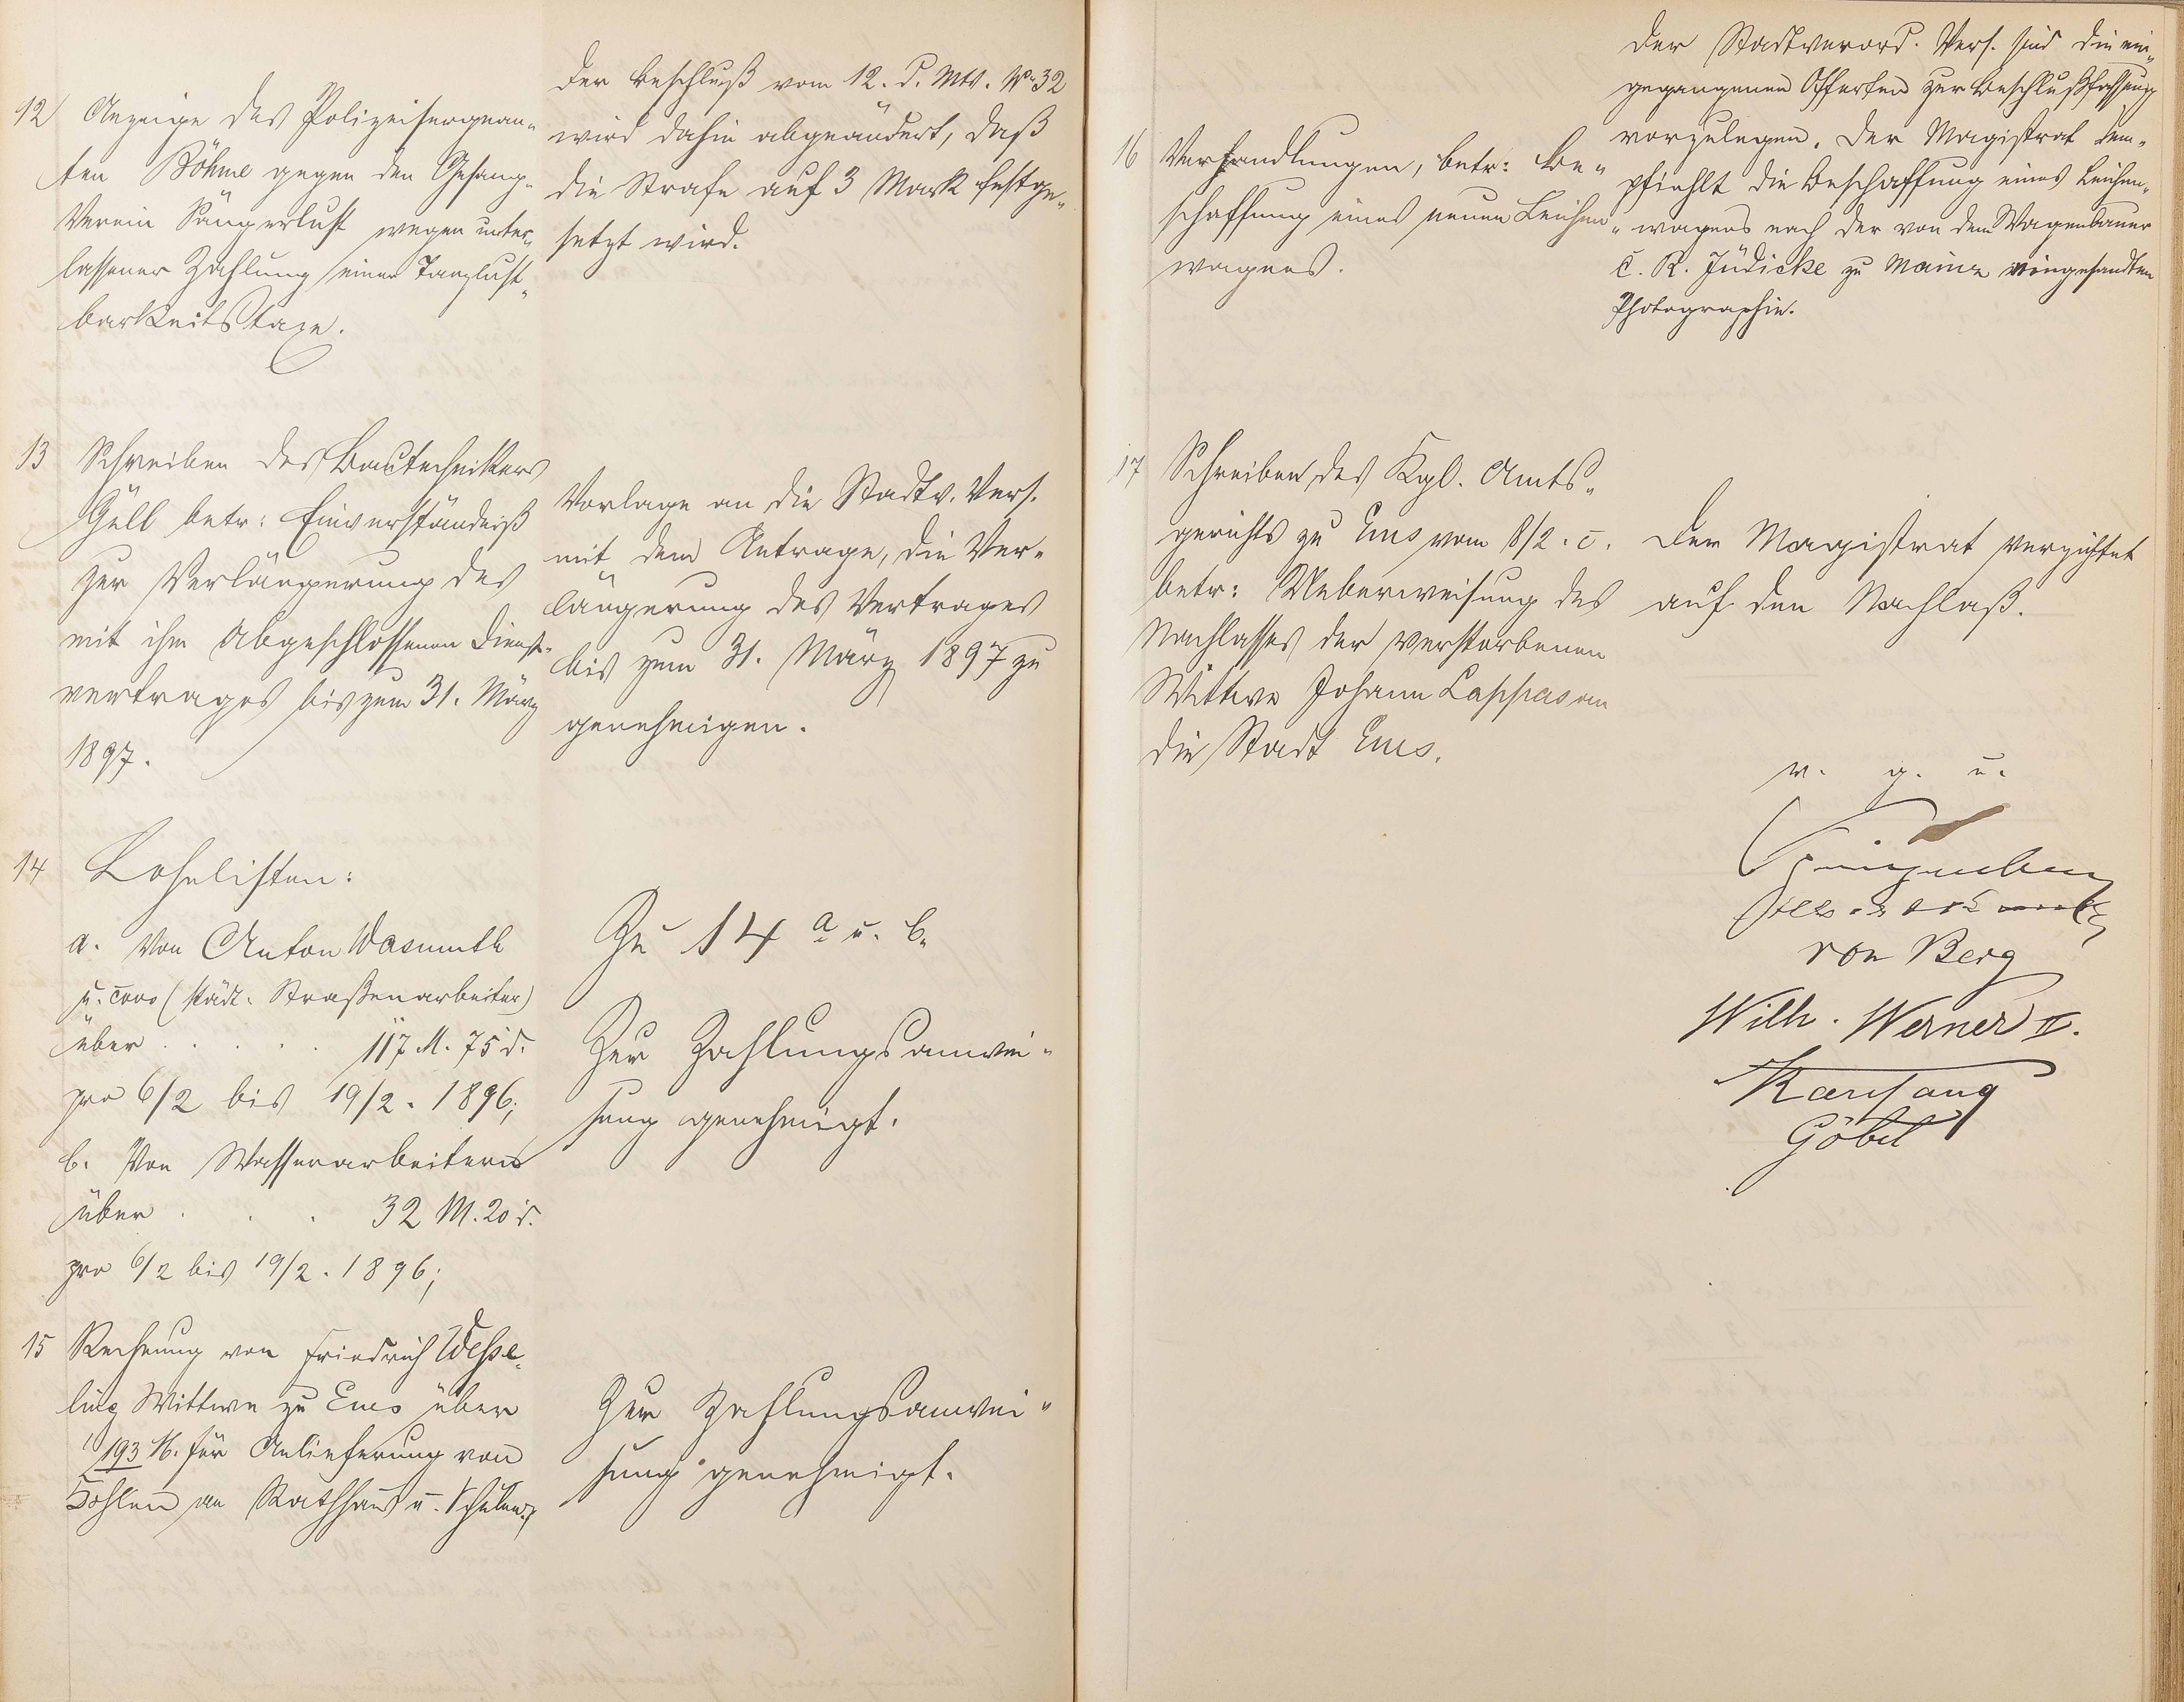 12) Anzeige des Polizeisergean-
ten Böhme gegen den Gesang-
Verein Sängerlust wegen unter-
lassener Zahlung einer Tanzlust-
barkeitstaxe.
Der Beschluß vom 12. d. Mts. No 32
wird dahin abgeändert, daß
die Strafe auf 3 Mark festge-
setzt wird.
13 Schreiben des Bautechnikers
Güll betr: Einverständniß
zur Verlängerung des
mit ihm abgeschlossenen Dienst-
vertrages bis zum 31. März
1897.
Vorlage an die Stadtv. Vers.
mit dem Antrage, die Ver-
längerung des Vertrages
bis zum 31. März 1897 zu
genehmigen.
14 Lohnlisten:
a. Von Anton Wasmuth
u. Cons (städt. Straßenarbeiter)
über . . . . . 117 M. 75 d.
pro 6/2 bis 19/2. 1896;
b. Von Wasserarbeitern
über . . . 32 M. 20 d.
pro 6/2 bis 19/2. 1896;
Zu 14 a u. b.
Zur Zahlungsanwei-
sung genehmigt.
15 Rechnung von Friedrich Wesse-
ling Wittwe zu Ems über
193 M. für Anlieferung von
Kohlen an Rathhaus u. Schulen.
Zur Zahlungsanwei-
sung genehmigt.
16 Verhandlungen, betr: Be-
schaffung eines neuen Leichen-
wagens.
Der Stadtverord. Vers. sind die ein-
gegangenen Offerten zur Beschlußfassung
vorzulegen. Der Magistrat em-
pfiehlt die Beschaffung eines Leichen-
wagens nach der von dem Wagenbauer
C. R. Jüdicke zu Mainz eingesandten
Photographie.
17 Schreiben des Kgl. Amts-
gerichts zu Ems vom 8/2. c.
betr: Ueberweisung des
Nachlasses der verstorbenen
Wittwe Johann Lappas an
die Stadt Ems.
Der Magistrat verzichtet
auf den Nachlaß.
v. g. u.
von Berg
Wilh. Werner II.
Göbel